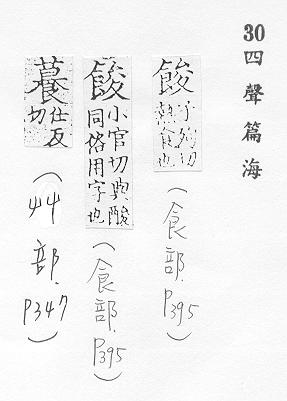 30四聲篇海
餕
子殉切
熟食也
(食部.P395)
餕
小官切與酸
同俗用字也
(食部.P395)
仕反
切
(艸部.P347)